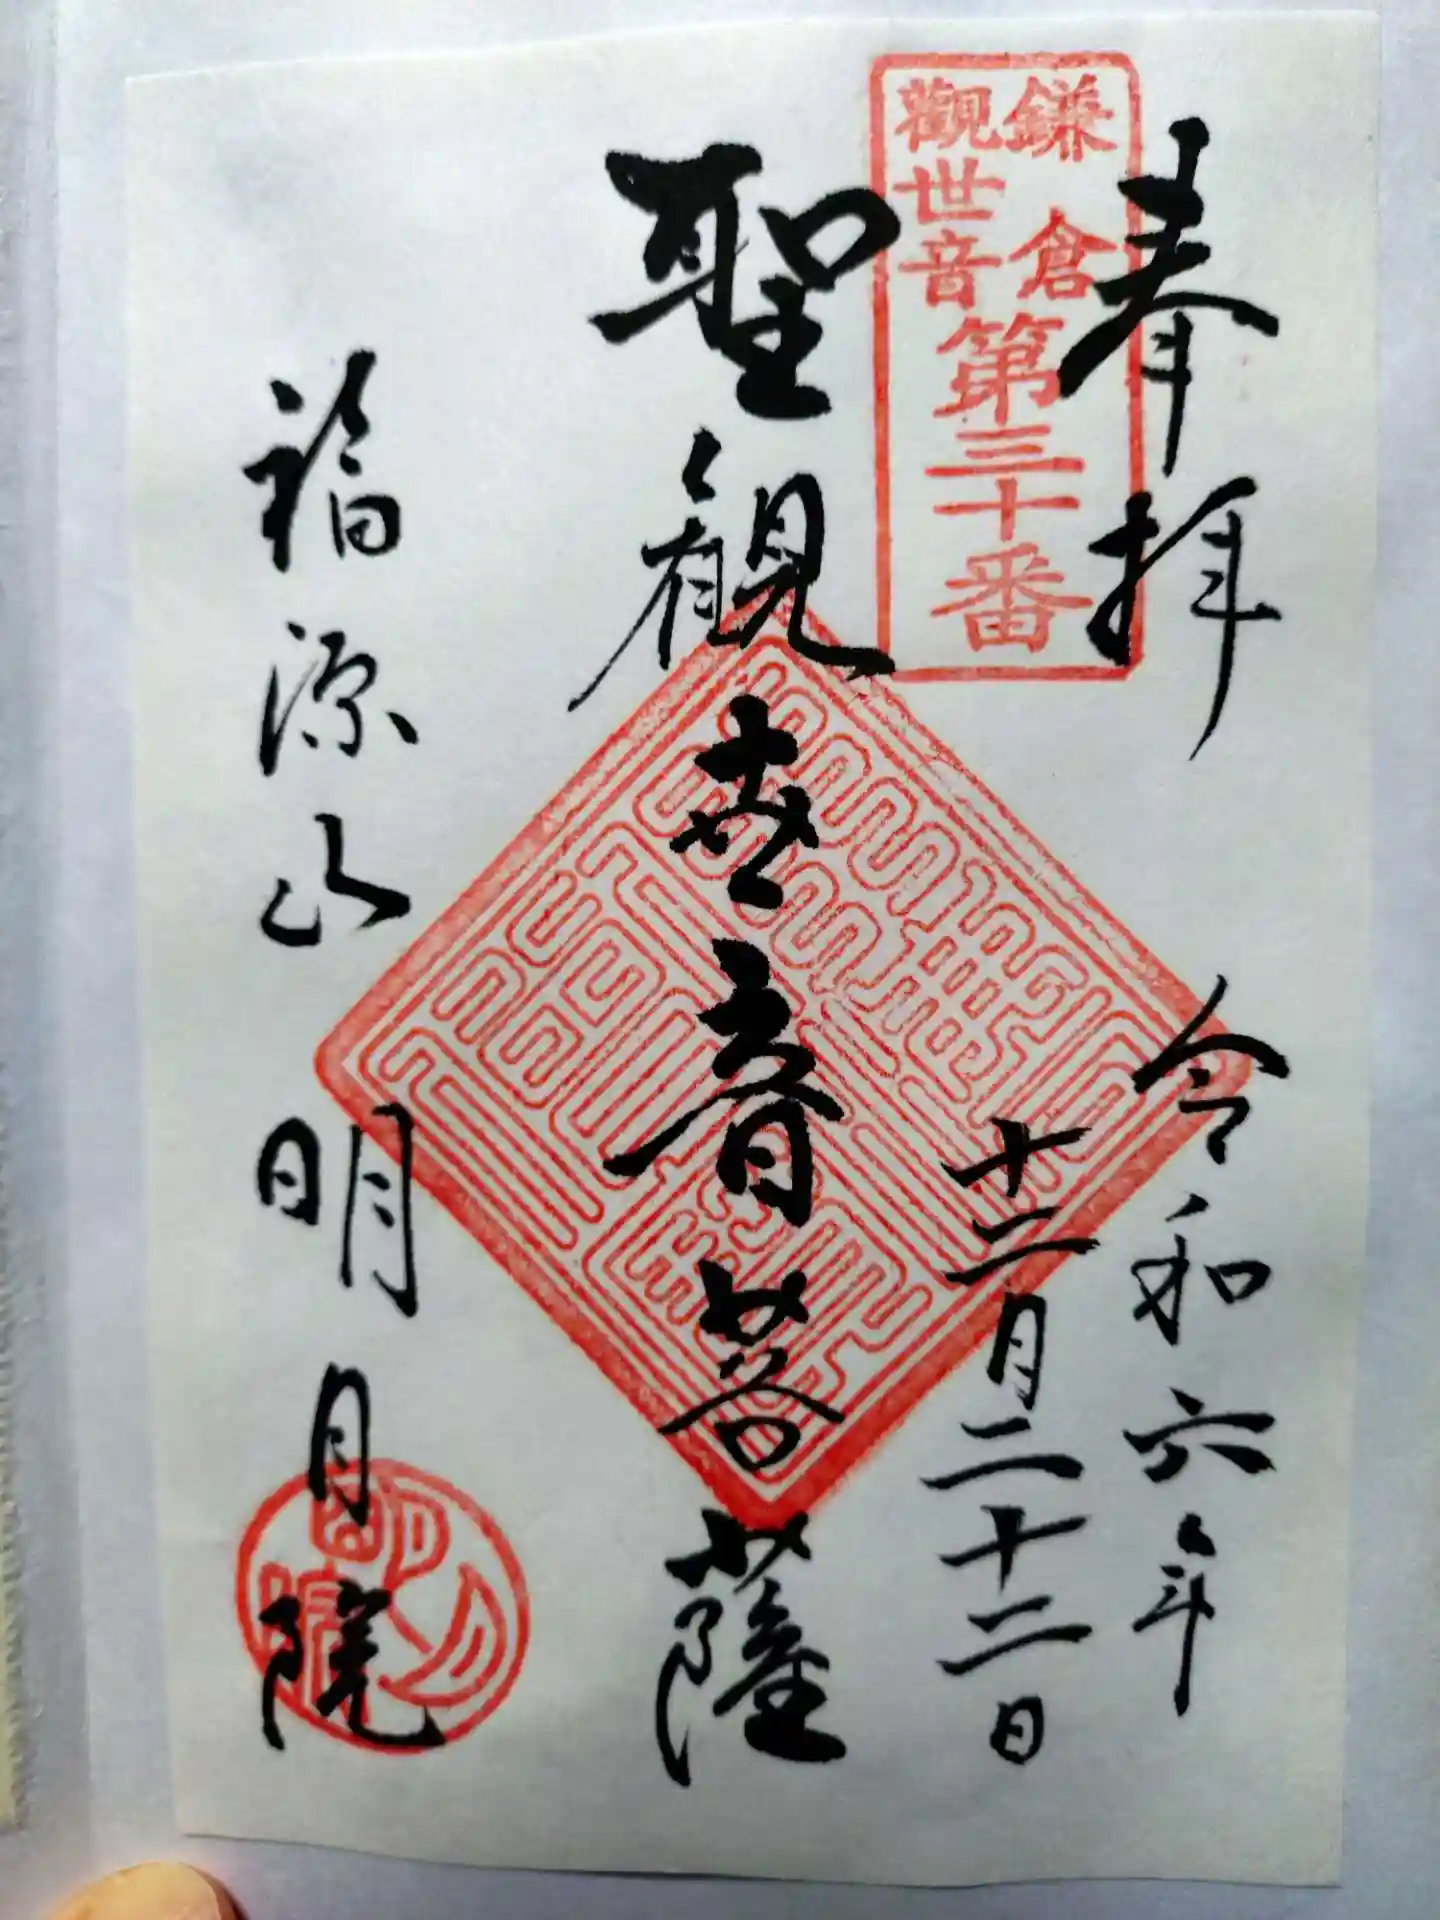 奉拝
令和六年
十二月二十二日
鎌倉
觀世音
第三十番
聖観世音菩薩
福源山明月院